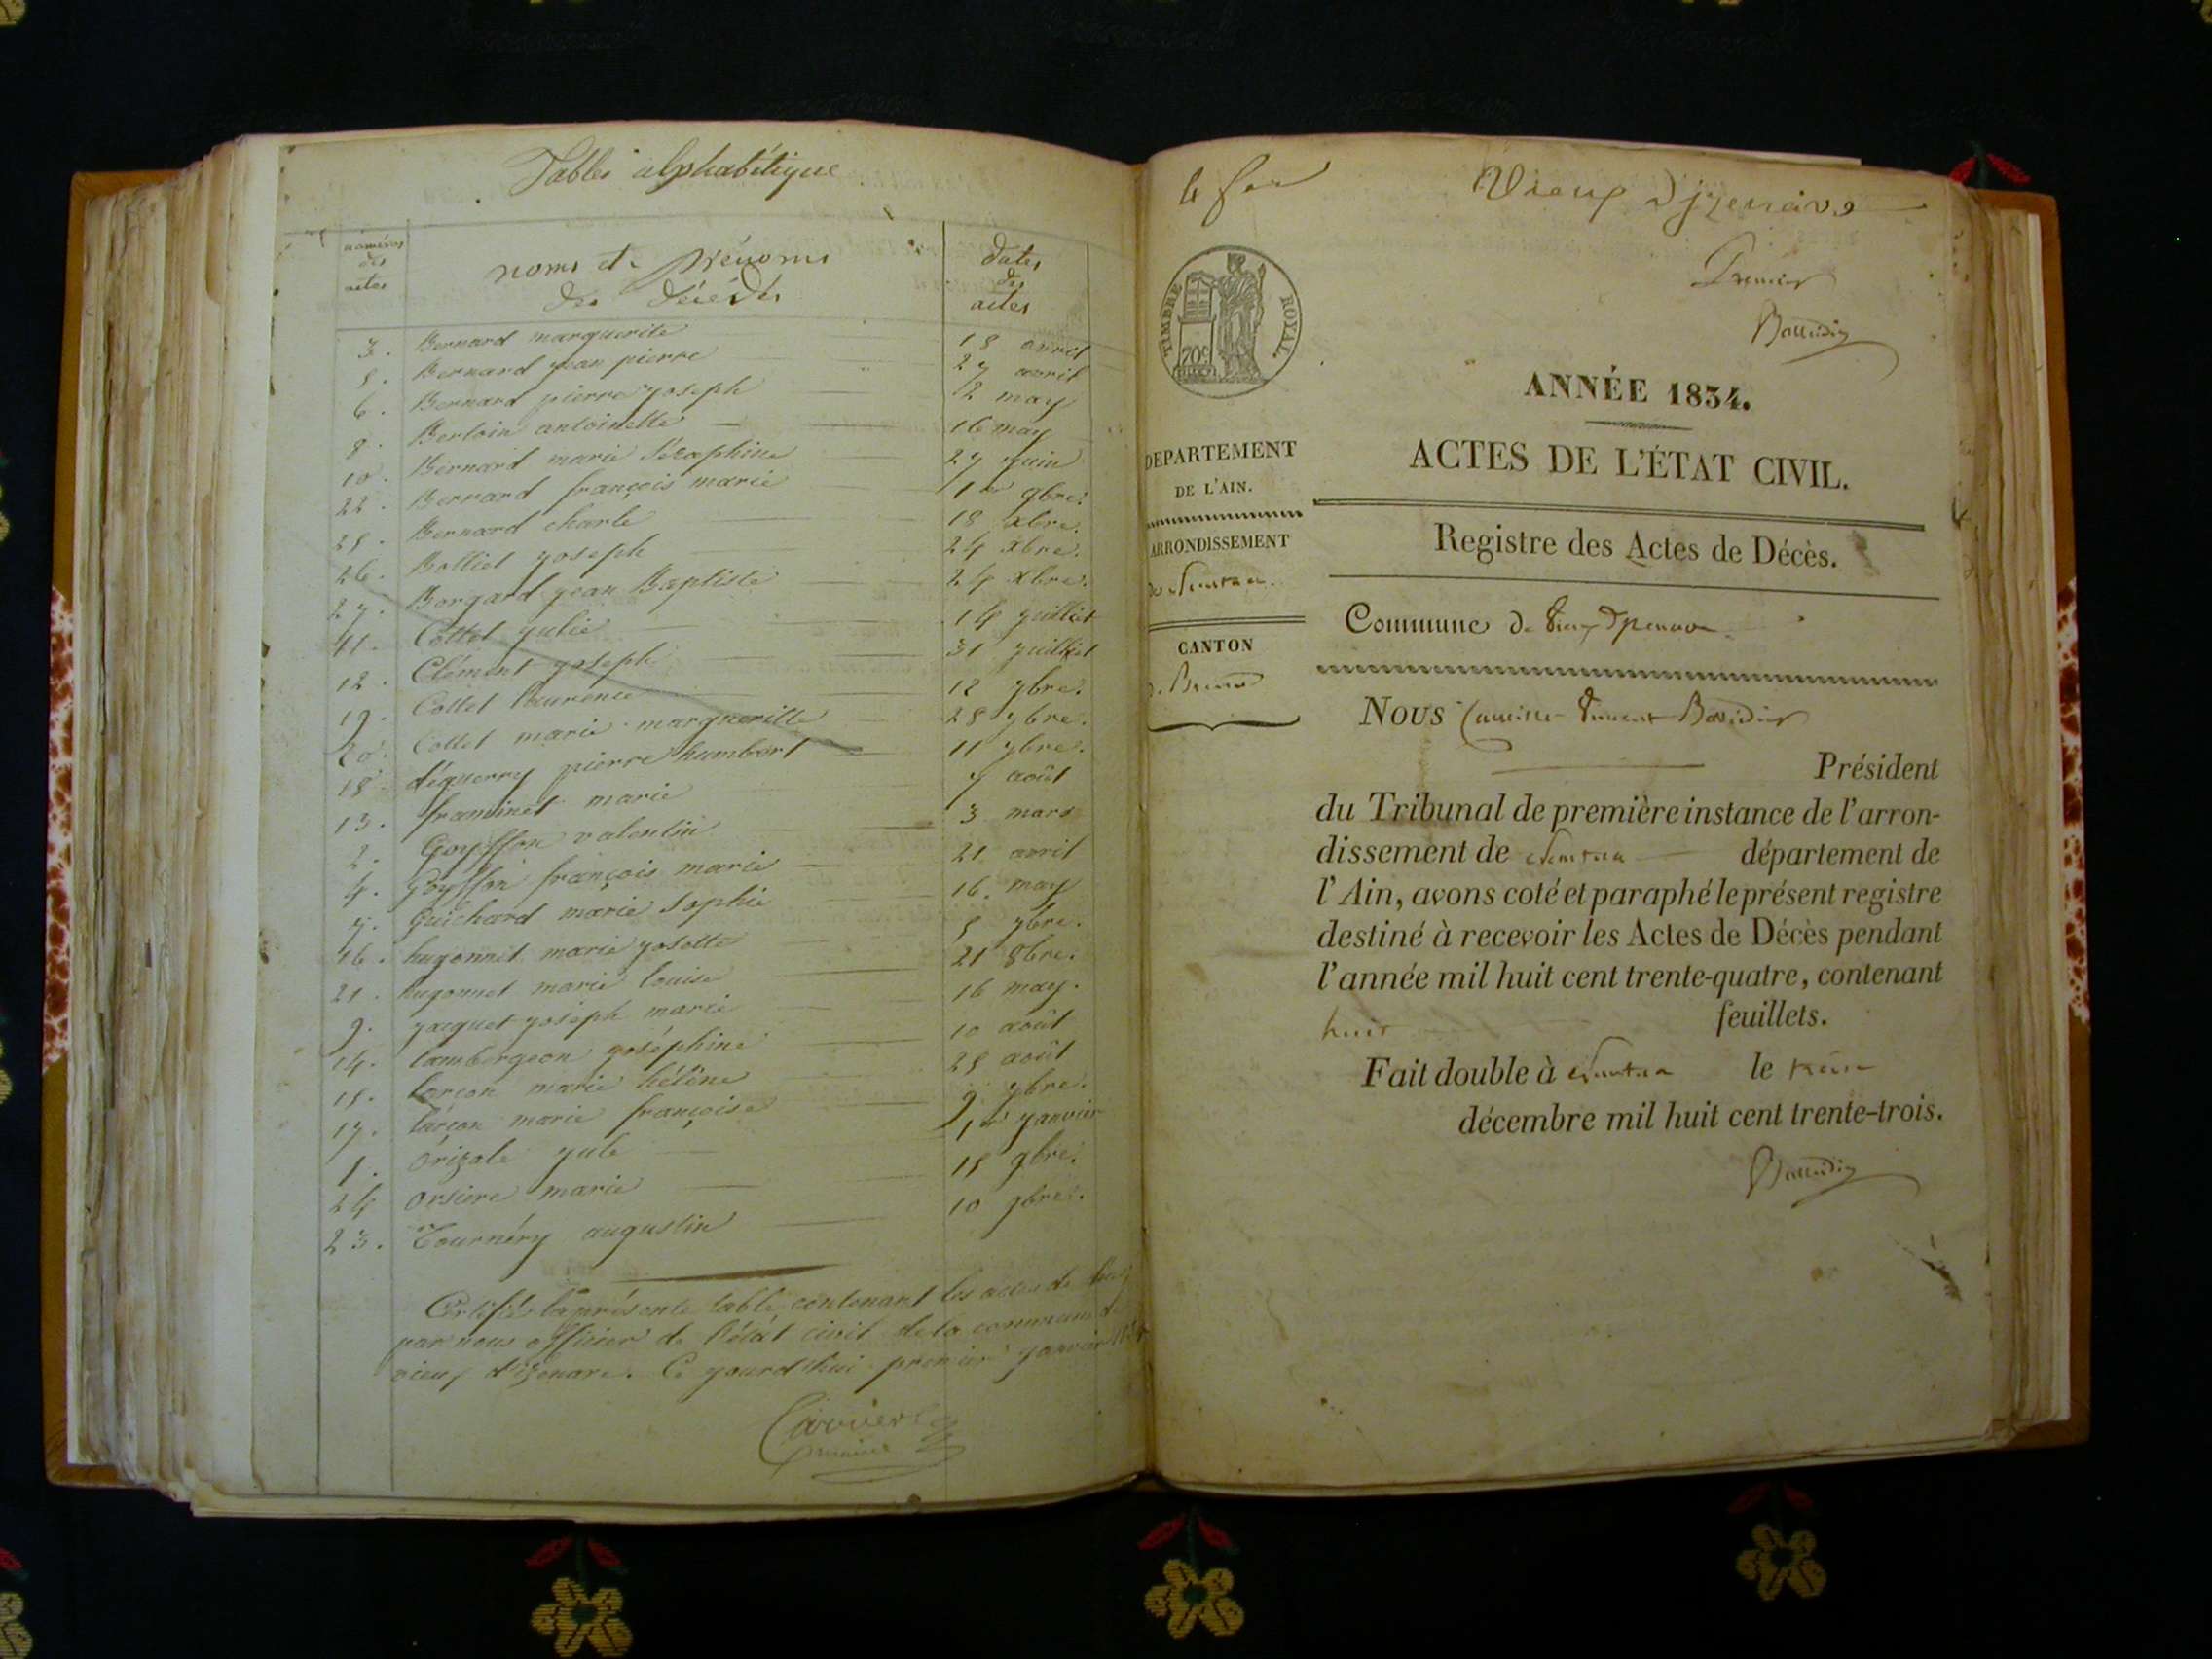 Tables alphabétique
numéros des actes
noms et prénoms des décédés
dates des actes
3. Bernard marguerite 18 avril
5. Bernard jean pierre 27 avril
6. Bernard pierre joseph 2 may
8. Berloin antoinette 16 may
10. Bernard marie Séraphine 27 juin
22. Bernard françois marie 1er 9bre.
25. Bernard charle 18 xbre.
26. Bolliet joseph 24 xbre.
27. Borgard jean Baptiste 24 xbre.
11. Collet julie 14 juillet
12. Clément joseph 31 juillet
19. Collet laurence 12 7bre.
20. Collet marie marguerille 28 7bre.
18. déguerry pierre humbert 11 7bre.
13. framinet marie 7 août
2. Goyffon valentin 3 mars
4. Goyffon françois marie 21 avril
7. Guichard marie Sophie 16. may
16. hugonnet marie josette 5 7bre.
21. hugonnet marie louise 21 8bre.
9. jacquet joseph marie 16 may.
14. lambergeon joséphine 10 août
15. larçon marie hélène 25 août
17. larçon marie françoise 9 7bre.
1. orizale jule 1er janvier
24 orsiere marie 15 9bre.
23. Tournéry augustin 10 9bre.
Certifié la présente table, contenant les actes de
par nous officier de l'état civil de la commune de
vieux d'izenave. Ce jourd'hui premier janvier
Carrier
maire
Vieux d'izenave
Premier
Baudin
TIMBRE ROYAL.
70c
ANNÉE 1834.
ACTES DE L'ÉTAT CIVIL.
DEPARTEMENT
DE L'AIN.
ARRONDISSEMENT
de Nantua.
CANTON
de Brénod
Registre des Actes de Décès.
Commune de Vieux d'izenave
Nous Vincent
Président
du Tribunal de première instance de l'arron-
dissement de Nantua département de
l'Ain, avons coté et paraphé le présent registre
destiné à recevoir les Actes de Décès pendant
l'année mil huit cent trente-quatre, contenant
huit feuillets.
Fait double à Nantua le
décembre mil huit cent trente-trois.